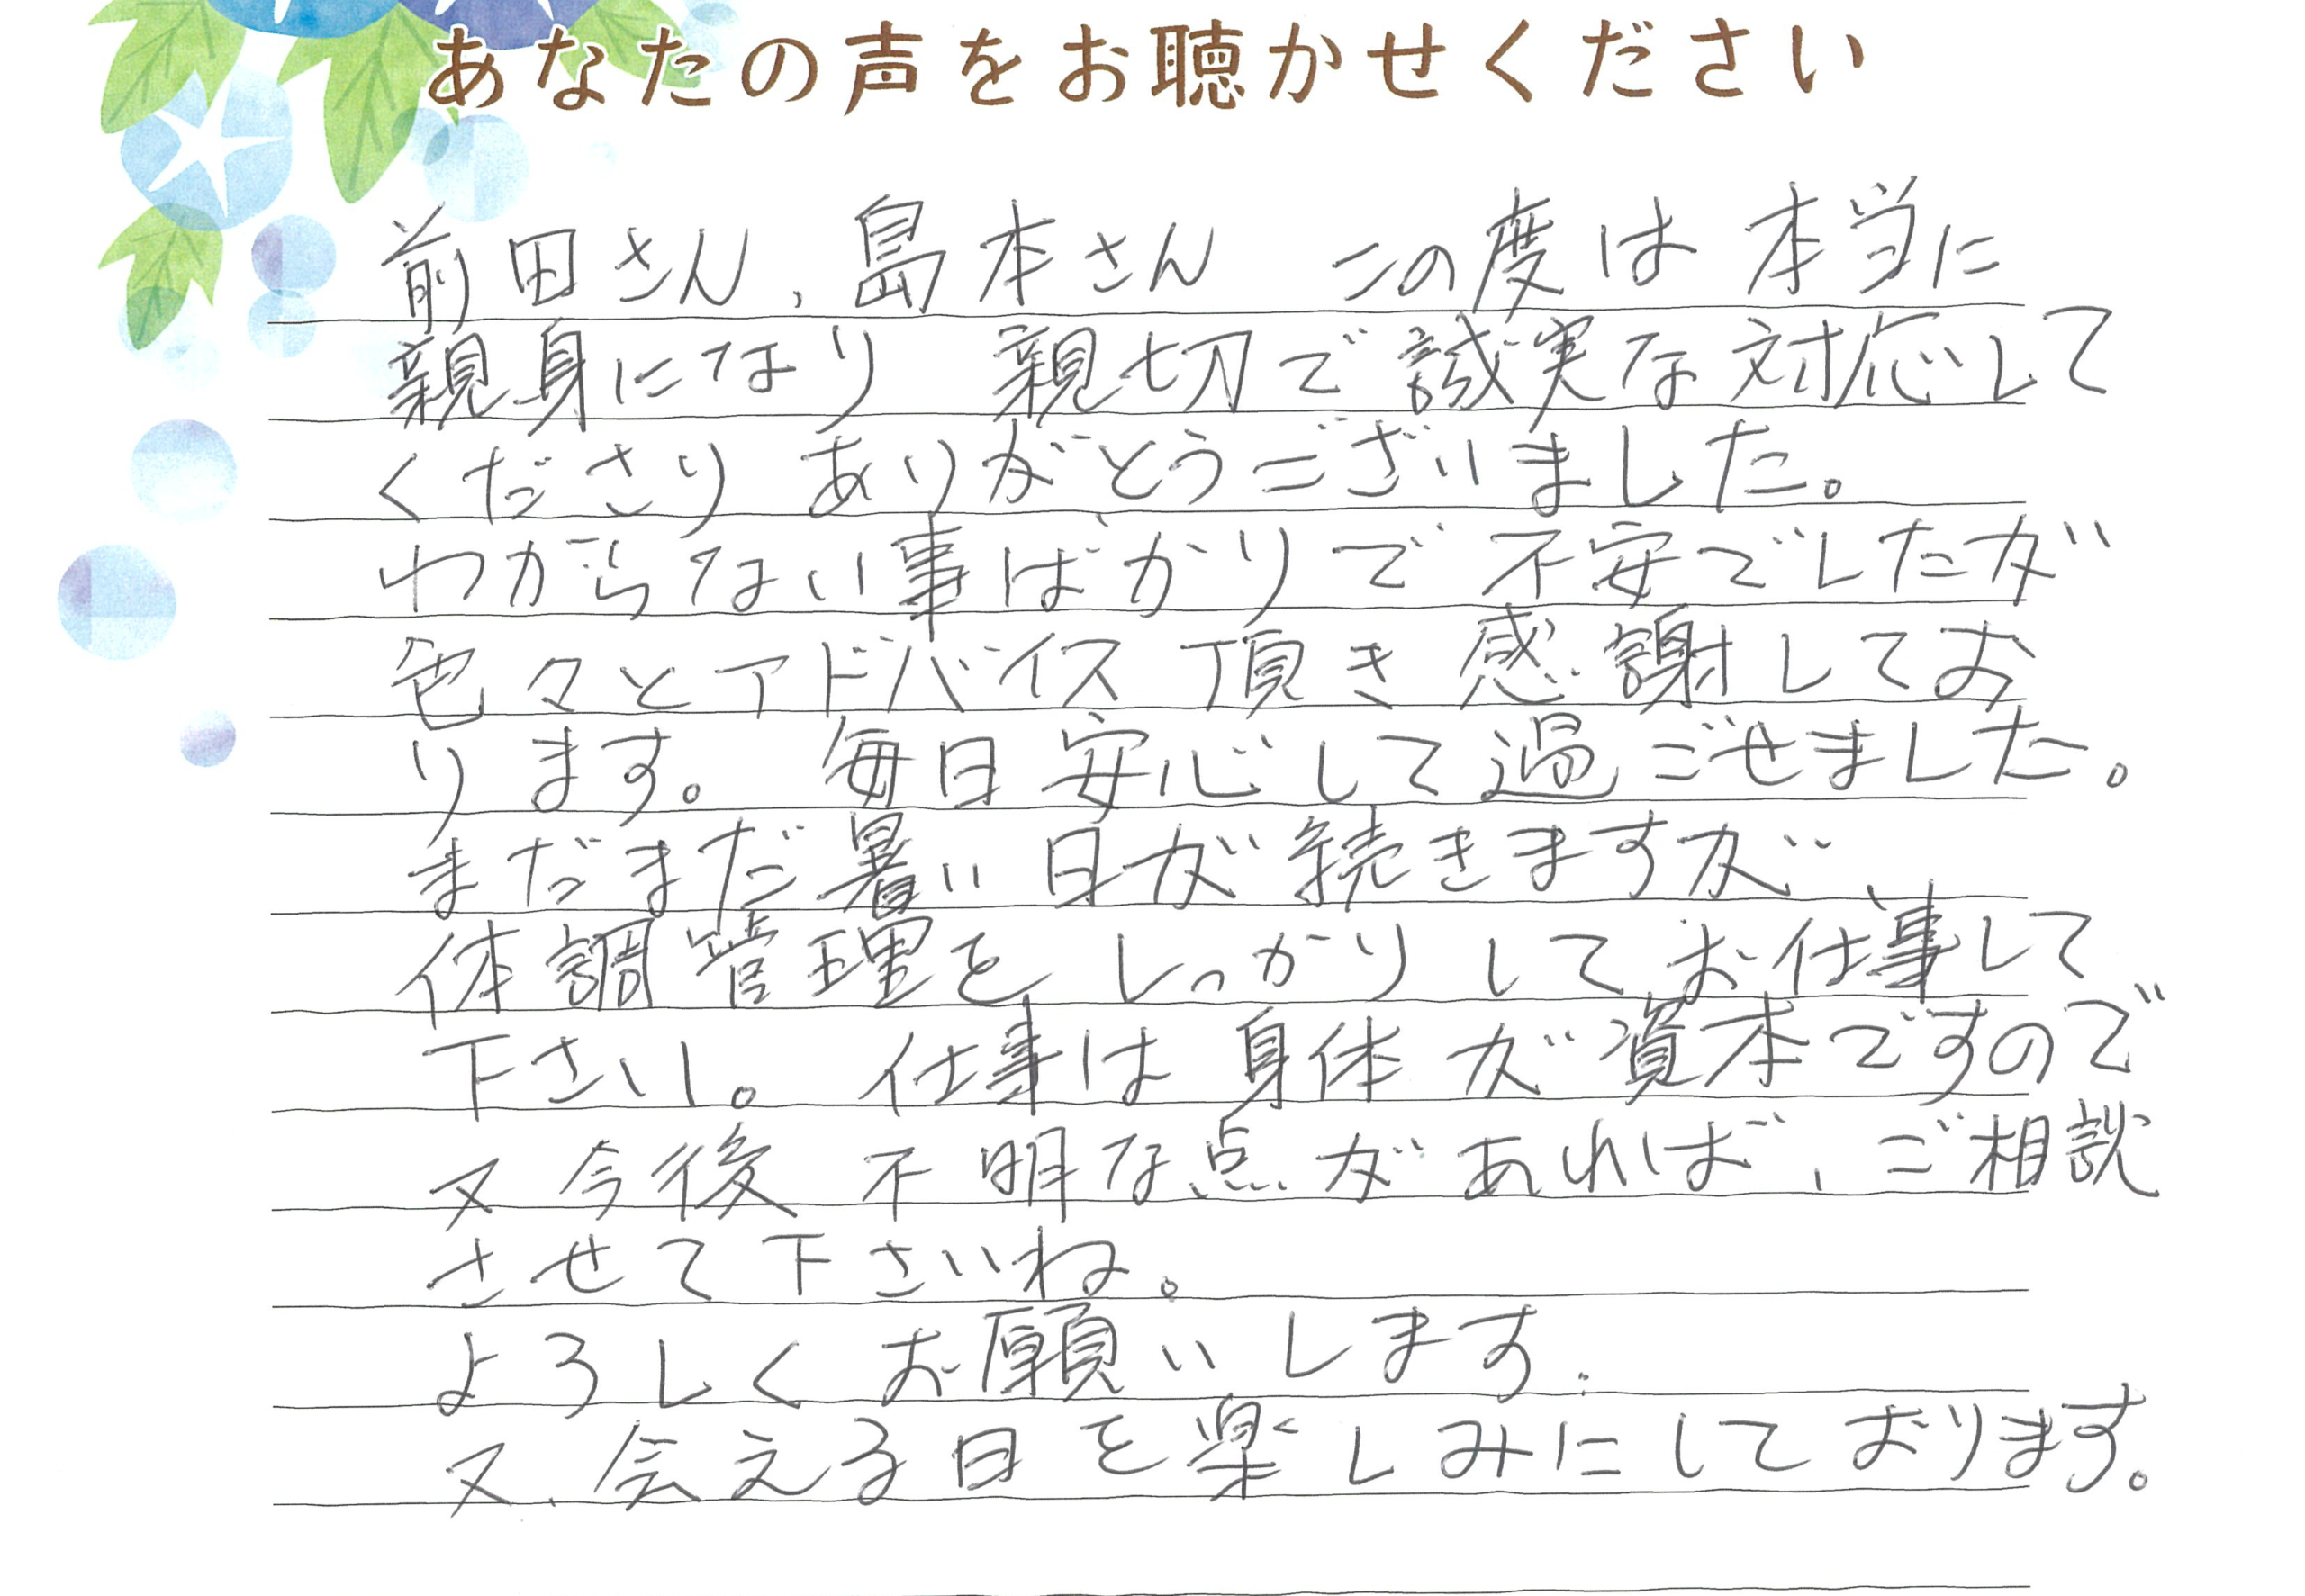 あなたの声をお聴かせください
前田さん、島本さん この度は本当に
親身になり 親切で誠実な対応して
くださりありがとうございました。
わからない事ばかりで不安でしたが
色々とアドバイス頂き感謝してお
ります。毎日安心して過ごせました。
まだまだ暑い日が続きますが、
体調管理をしっかりしてお仕事して
下さいし。仕事は身体が資本ですので
又今後不明な点があれば、ご相談
させて下さいね。
よろしくお願いします.
又、会える日を楽しみにしております。